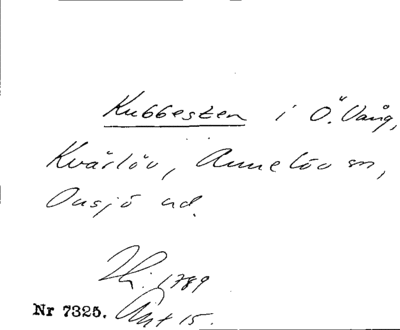 Kubbesten i Ö. Vång,
Kvärlöv, Annelöv sn,
Onsjö hd.
Hi. 1789
Nr 7325. Ant 15.